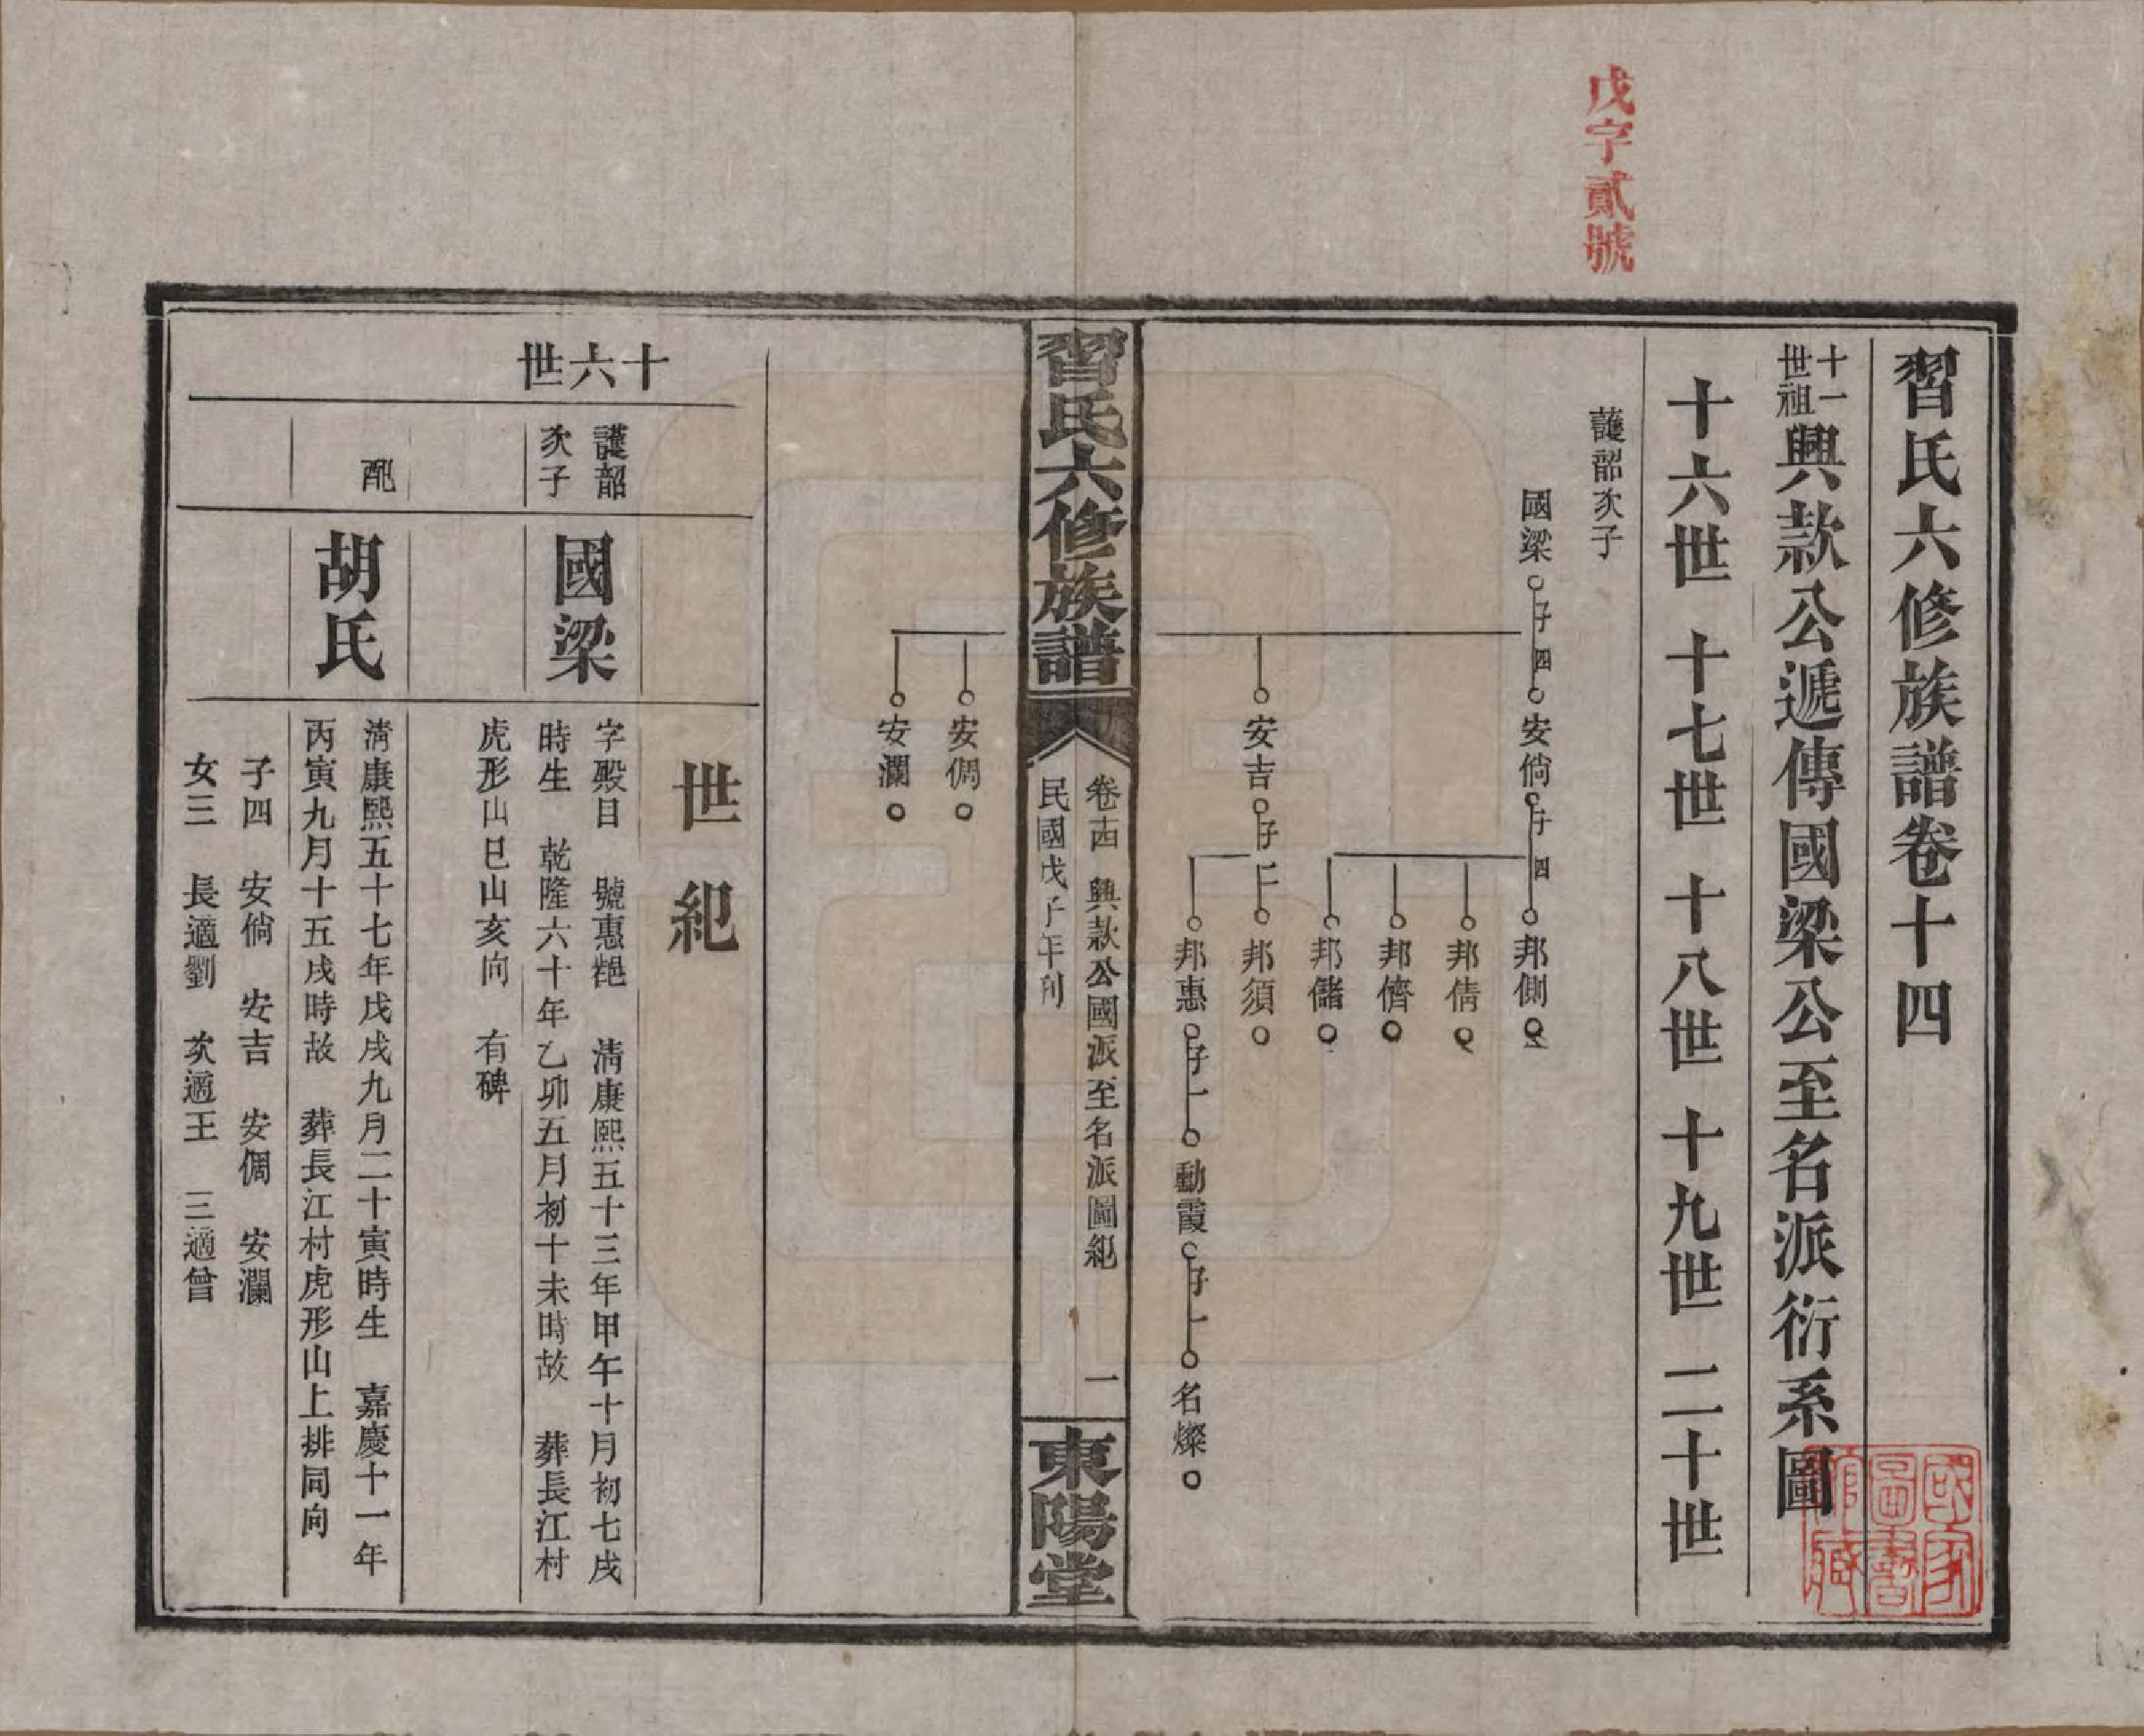 戊字貳號
習氏六修族譜卷十四
十一世祖興款公遞傳國梁公至名派衍系圖
十六世 十七世 十八世 十九世 二十世
護韶次子
國梁 子四 安倘 子四 邦側
邦倩
邦儕
邦儲
安吉 子二 邦須
邦惠 子一 動霞 子一 名燦
習氏六修族譜 卷十四 興款公國派至名派圖紀 一 東陽堂
民國戊子年刊
安倜
安瀾
世紀
十六世
護韶次子
國梁
字殿目 號惠 清康熙五十三年甲午十月初七戌
時生 乾隆六十年乙卯五月初十未時故 葬長江村
虎形山巳山亥向 有碑
配
胡氏
清康熙五十七年戊戌九月二十寅時生 嘉慶十一年
丙寅九月十五戌時故 葬長江村虎形山上排同向
子四 安倘 安吉 安倜 安瀾
女三 長適劉 次適王 三適曾
國家圖書館藏